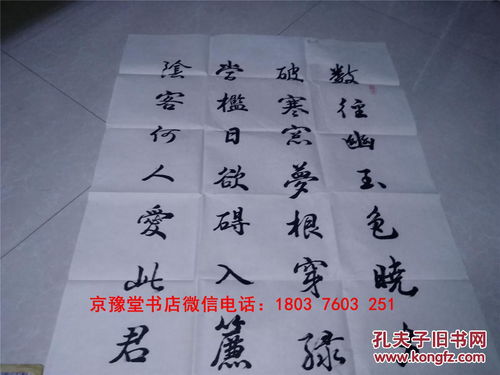 数径幽玉色曉
破寒窓夢根穿緑
當檻日欲碍入簾
陰客何人愛此君
京豫堂书店微信电话：1803 7603 251
孔夫子旧书网
www.kongfz.com